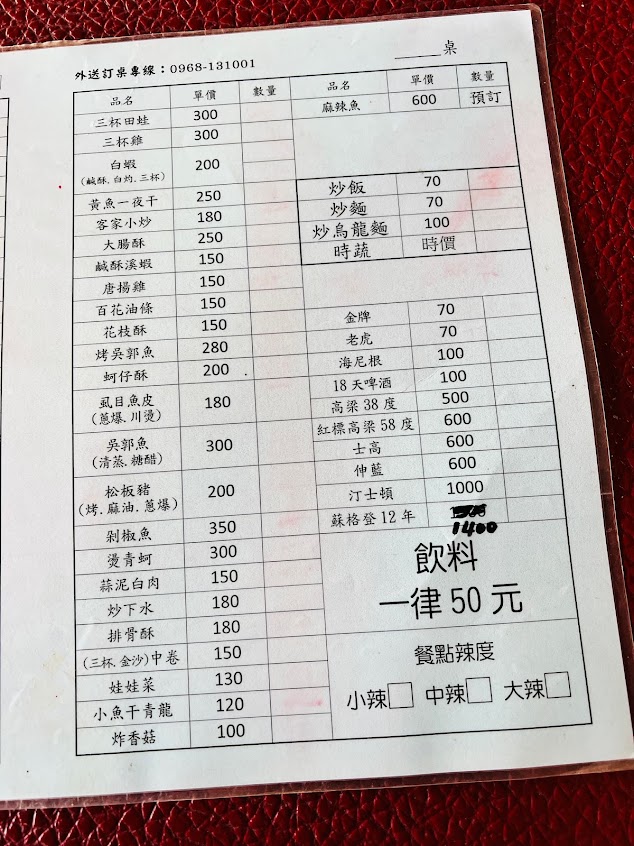 外送訂桌專線：0968-131001
＿＿桌
品名 單價 數量
三杯田蛙 300
三杯雞 300
白蝦 200
(鹹酥.白灼.三杯)
黃魚一夜干 250
客家小炒 180
大腸酥 250
鹹酥溪蝦 150
唐揚雞 150
百花油條 150
花枝酥 150
烤吳郭魚 280
蚵仔酥 200
虱目魚皮 180
(蔥爆.川燙)
吳郭魚 300
(清蒸.糖醋)
松板豬 200
(烤.麻油.蔥爆)
剁椒魚 350
燙青蚵 300
蒜泥白肉 150
炒下水 180
排骨酥 180
(三杯.金沙)中卷 150
娃娃菜 130
小魚干青龍 120
炸香菇 100
品名 單價 數量
麻辣魚 600 預訂
炒飯 70
炒麵 70
炒烏龍麵 100
時蔬 時價
金牌 70
老虎 70
海尼根 100
18天啤酒 100
高梁38度 500
紅標高梁58度 600
士高 600
伸藍 600
汀士頓 1000
蘇格登12年
1400
飲料
一律50元
餐點辣度
小辣□ 中辣□ 大辣□